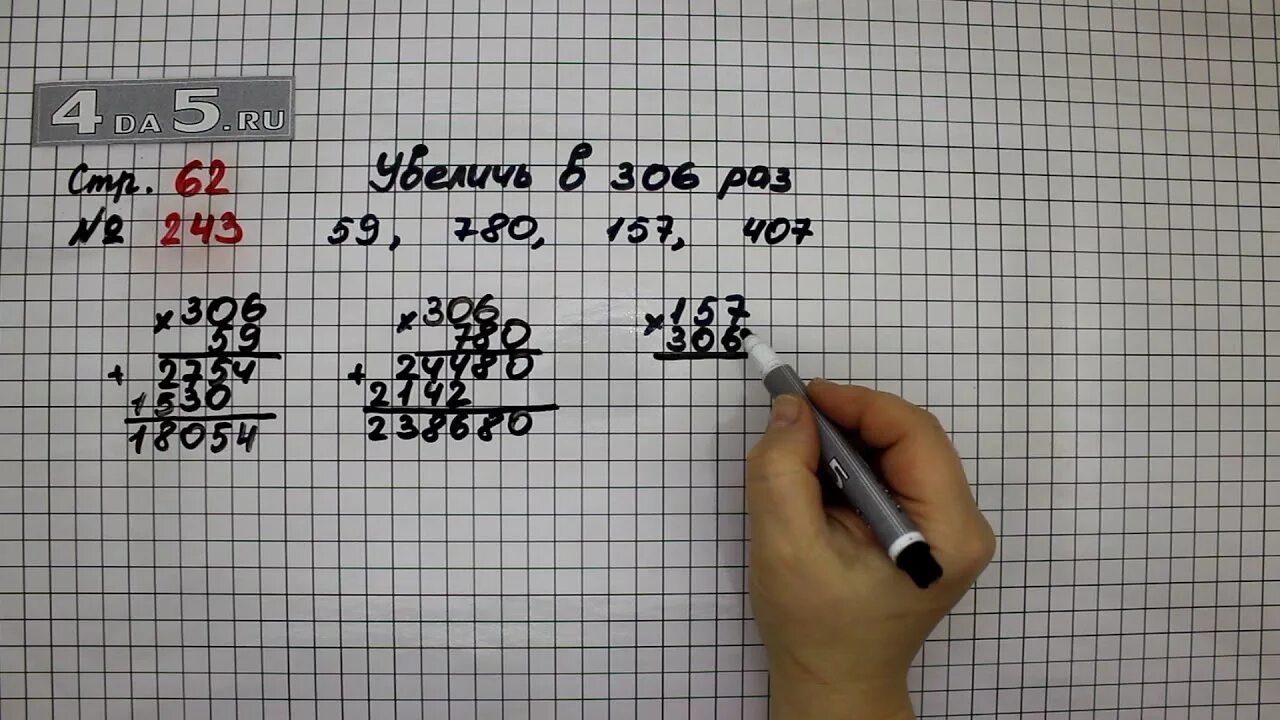 4DA5.RU
Стр. 62 Увеличь в 306 раз
№ 243 59, 780, 157, 407
×306 ×306 ×157
59 780 306
+ 2754 + 24480
1530 2142
18054 238680